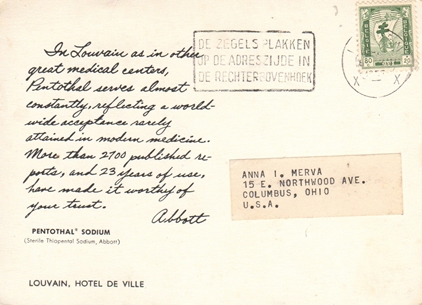 In Louvain as in other
great medical centers,
Pentothal serves almost
constantly, reflecting a world-
wide acceptance rarely
attained in modern medicine.
More than 2700 published re-
ports, and 23 years of use,
have made it worthy of
your trust.
Abbott
PENTOTHAL® SODIUM
(Sterile Thiopental Sodium, Abbott)
LOUVAIN, HOTEL DE VILLE
DE ZEGELS PLAKKEN
OP DE ADRESZIJDE IN
DE RECHTERBOVENHOEK
X X
ANNA I. MERVA
15 E. NORTHWOOD AVE.
COLUMBUS, OHIO
U.S.A.